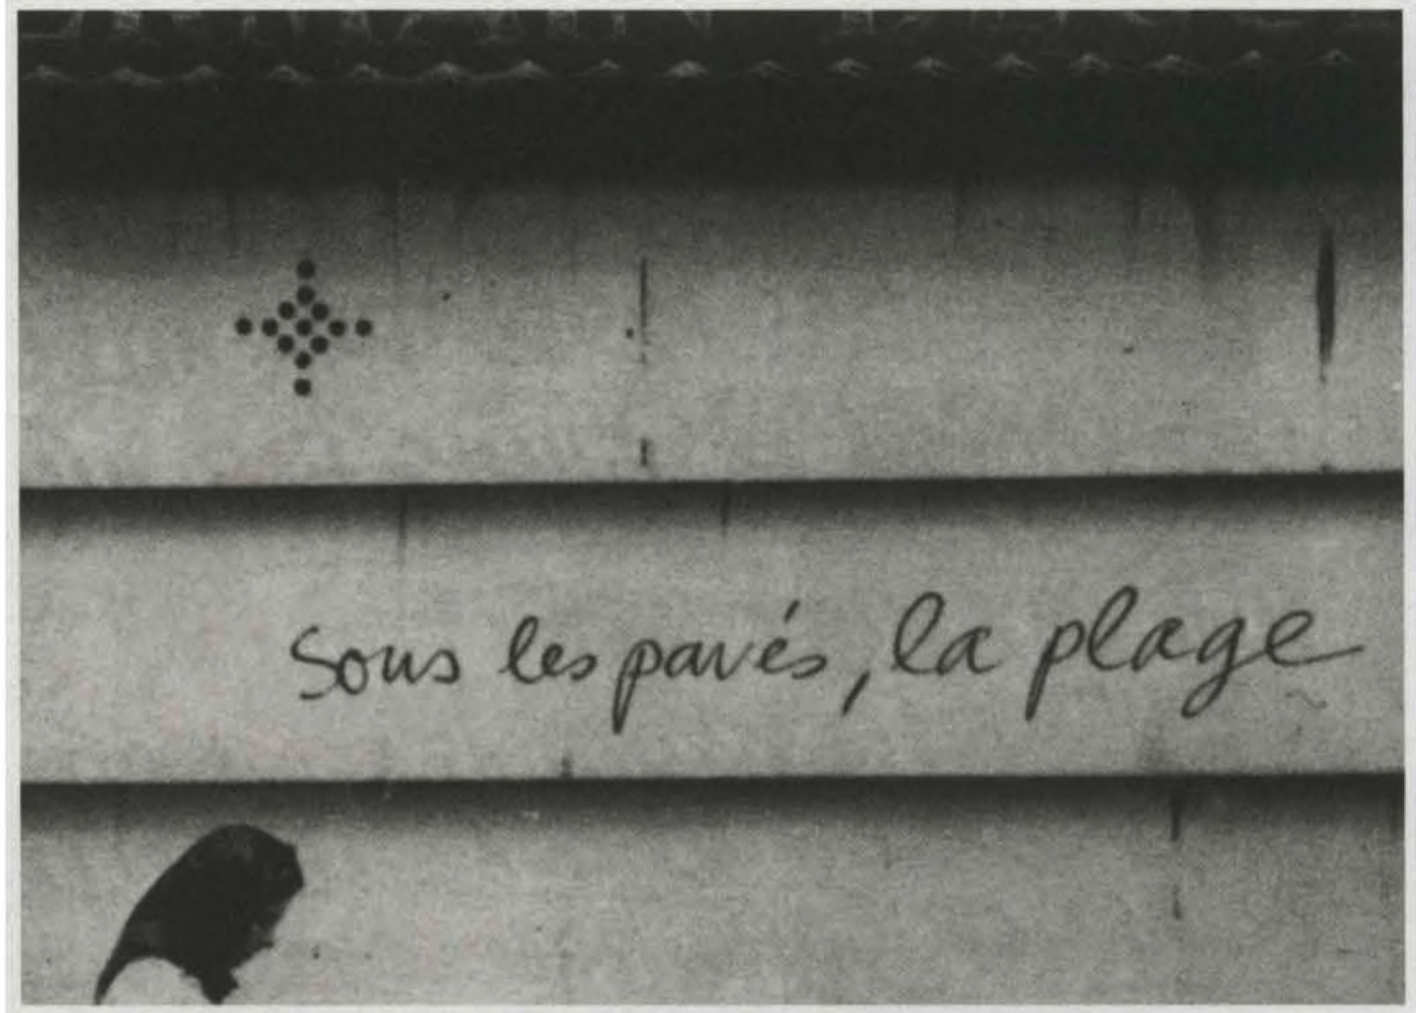 Sous les pavés, la plage